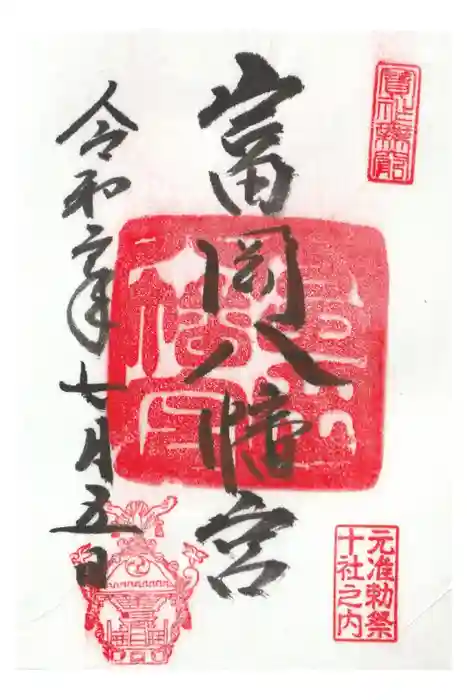 富岡八幡宮
元准勅祭
十社之内
令和二年七月五日